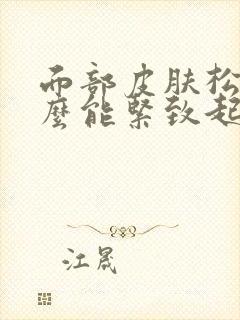 面部皮肤松
麼能緊致起
江晟